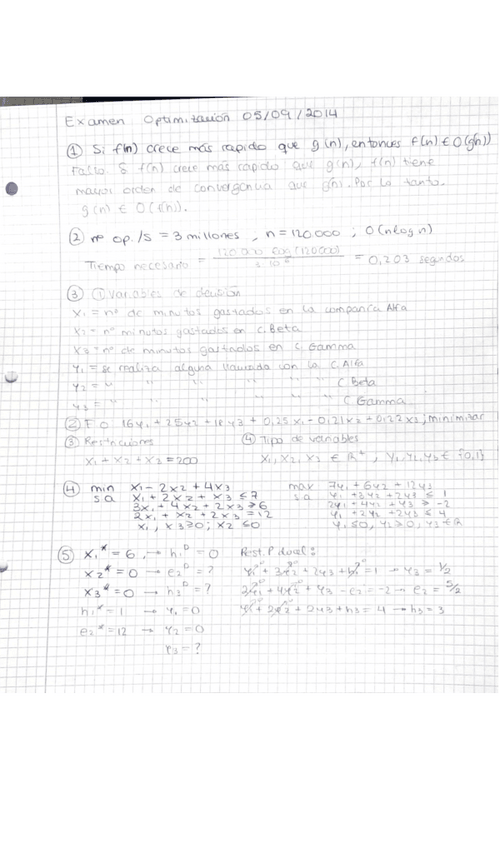 Examen Optimización 05/09/2014
① Si f(n) crece más rapido que g(n), entonces f(n) ∈ O(g(n))
Falso. Si f(n) crece más rapido que g(n), f(n) tiene
mayor orden de convergencia que g(n). Por lo tanto,
g(n) ∈ O(f(n)).
② nº op./s = 3 millones, n = 120.000 ; O(n log n)
Tiempo necesario = 120.000 log(120.000) / 3·10⁶ = 0,203 segundos
③ ① Variables de decisión
X₁ = nº de minutos gastados en la compañía Alfa
X₂ = nº minutos gastados en C. Beta
X₃ = nº de minutos gastados en C. Gamma
Y₁ = se realiza alguna llamada con la C. Alfa
Y₂ = " " " " " " C Beta
Y₃ = " " " " " " C Gamma
② F.O 16Y₁ + 25Y₂ + 18Y₃ + 0,25X₁ + 0,21X₂ + 0,22X₃ ; minimizar
③ Restricciones ④ Tipo de variables
X₁ + X₂ + X₃ = 200 X₁, X₂, X₃ ∈ R⁺, Y₁, Y₂, Y₃ ∈ {0,1}
④ min X₁ - 2X₂ + 4X₃ max 7Y₁ + 6Y₂ + 12Y₃
s.a X₁ + 2X₂ + X₃ ≤ 7 s.a Y₁ + 3Y₂ + 2Y₃ ≤ 1
3X₁ + 4X₂ + 2X₃ ≥ 6 2Y₁ + 4Y₂ + Y₃ ≥ -2
2X₁ + X₂ + 2X₃ = 12 Y₁ + 2Y₂ + 2Y₃ ≤ 4
X₁, X₃ ≥ 0; X₂ ≤ 0 Y₁ ≤ 0, Y₂ ≥ 0, Y₃ ∈ R
⑤ X₁* = 6, → h₁ᴰ = 0 Rest. P dual:
X₂* = 0 → e₂ᴰ = ? Y₁ + 3Y₂ + 2Y₃ + h₁ = 1 → Y₃ = 1/2
X₃* = 0 → h₃ᴰ = ? + 4Y₂ + Y₃ - e₂ = -2 → e₂ = 5/2
h₁* = 1 → Y₁ = 0 Y₁ + 2Y₂ + 2Y₃ + h₃ = 4 → h₃ = 3
e₂* = 12 → Y₂ = 0
Y₃ = ?